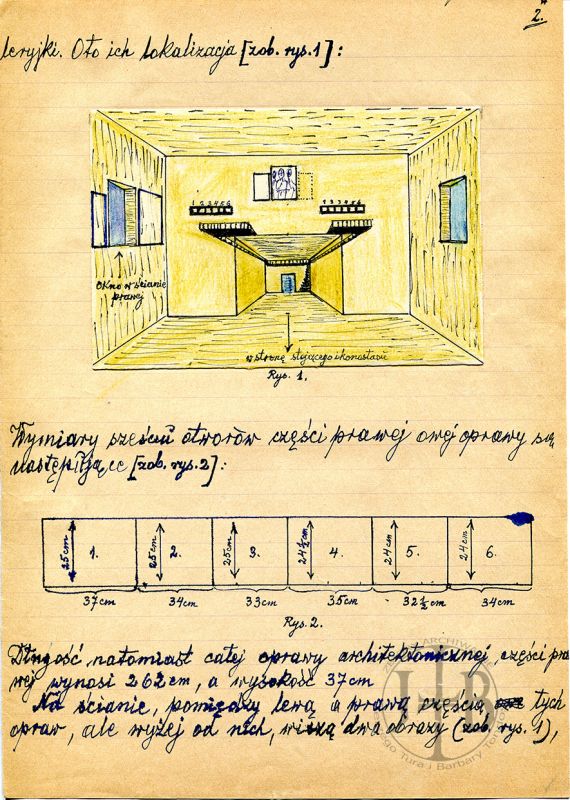 2.
leryjki. Oto ich lokalizacja [zob. rys.1]:
1 2 3 4 5 6
1 2 3 4 5 6
Okno w ścianie
prawej
w stronę stojącego ikonostasu
Rys. 1.
Wymiary sześciu otworów części prawej owej oprawy są
następujące [zob. rys.2]:
25cm 1. 25cm 2. 25cm 3. 24½cm 4. 24cm 5. 24cm 6.
37cm 34cm 33cm 35cm 32½cm 34cm
Rys. 2.
Długość natomiast całej oprawy architektonicznej, części pra
wej wynosi 262cm, a wysokość 37cm
Na ścianie, pomiędzy lewą a prawą częścią tych
opraw, ale wyżej od nich, wiszą dwa obrazy (zob. rys. 1),
ARCHIW
Tura i Barbary